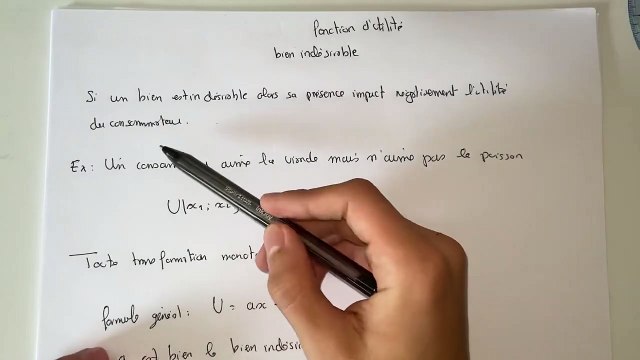 fonction d'utilité
bien indésirable
Si un bien est indésirable alors sa présence impact négativement l'utilité
du consommateur.
Ex: Un consom u aime la viande mais n'aime pas le poisson
U(x1; x2
Toute transformation monot
formule général: U = ax
est bien le bien indési